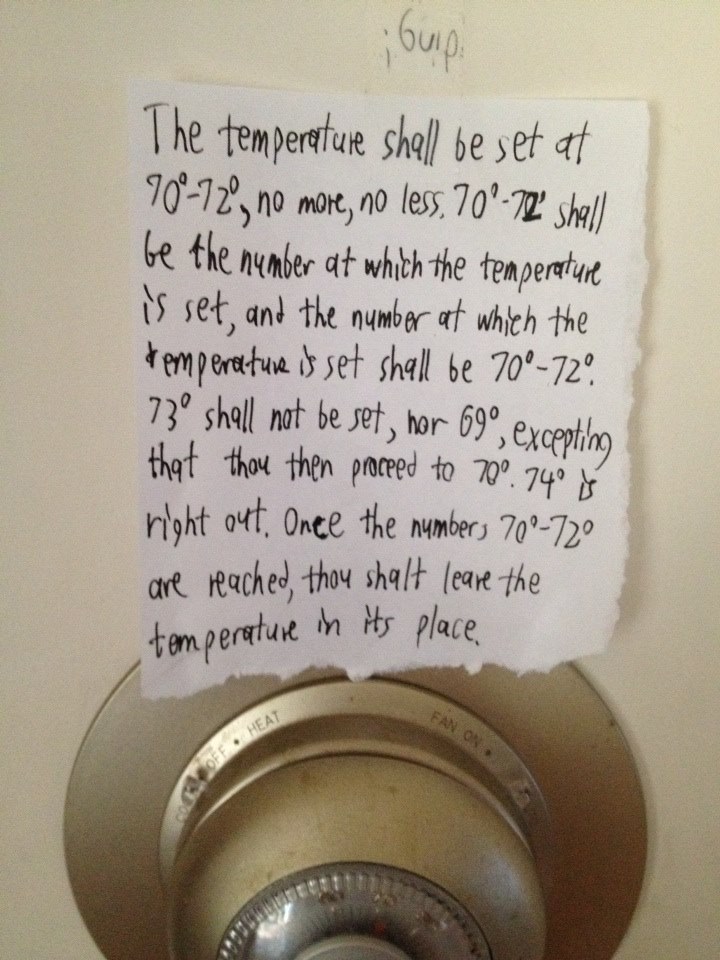 The temperature shall be set at
70°-72°, no more, no less. 70°-72° shall
be the number at which the temperature
is set, and the number at which the
temperature is set shall be 70°-72°.
73° shall not be set, nor 69°, excepting
that thou then proceed to 70°. 74° is
right out. Once the numbers 70°-72°
are reached, thou shalt leave the
temperature in its place.
OFF • HEAT
FAN ON •